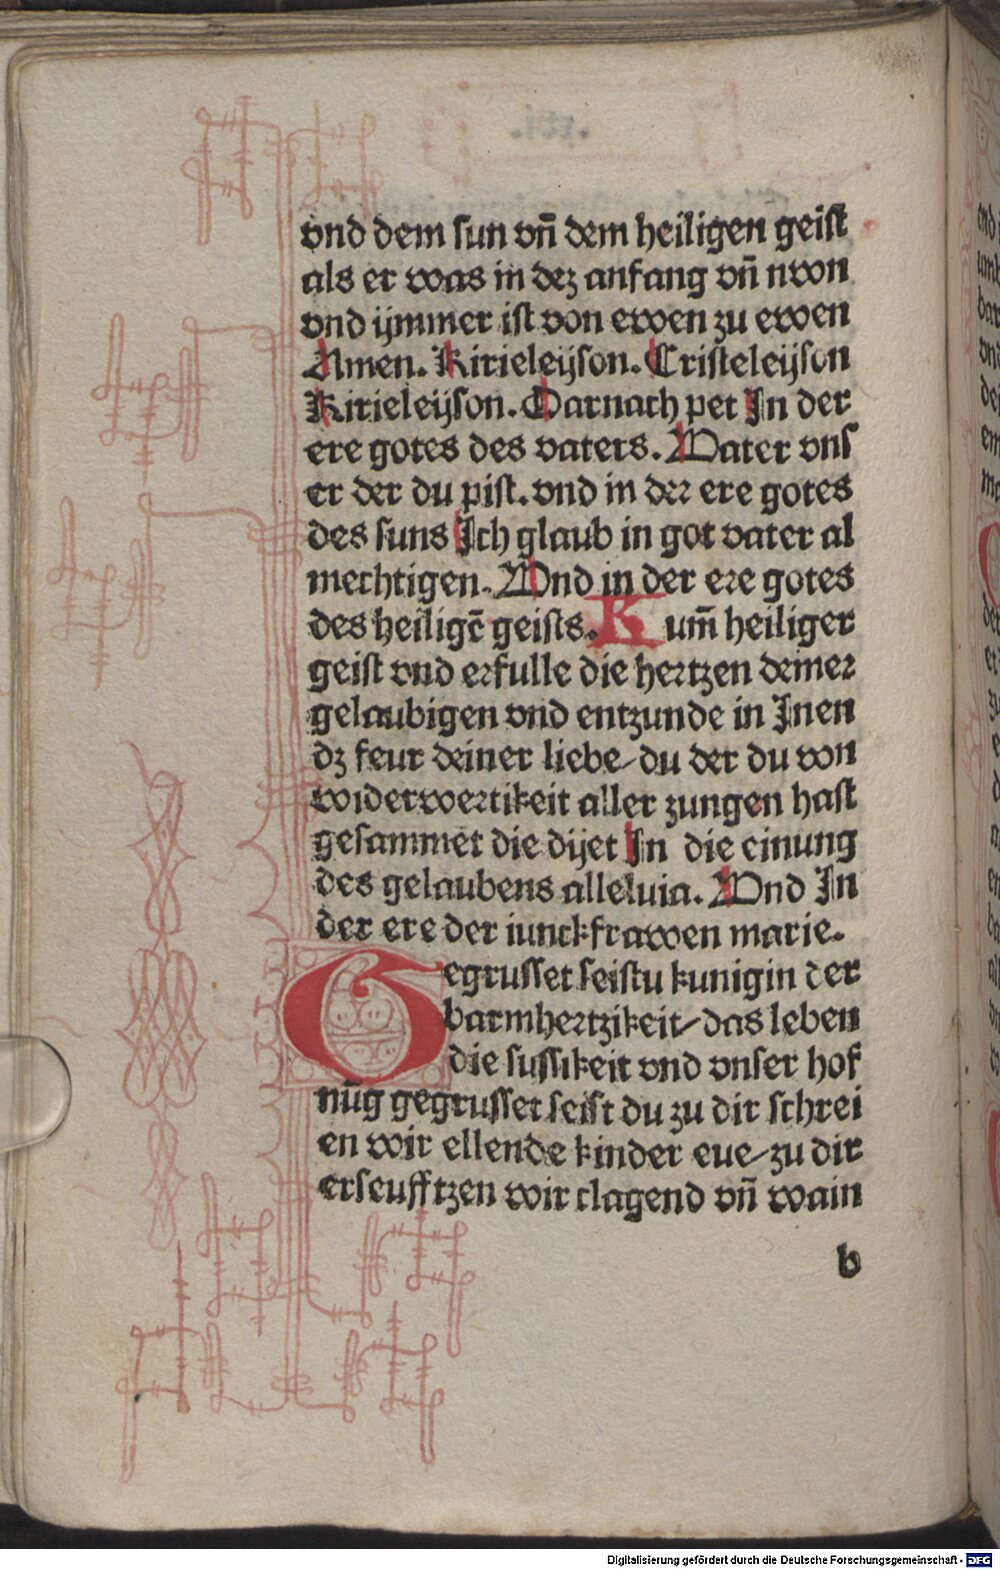 vnd dem sun vñ dem heiligen geist
als er was in dez anfang vñ nwon
vnd ijmmer ist von ewen zu ewen
Amen. Kirieleijson. Cristeleijson
Kirieleijson. Darnach pet In der
ere gotes des vaters. Vater vns
er der du pist. vnd in der ere gotes
des suns Ich glaub in got vater al
mechtigen. Vnd in der ere gotes
des heiligē geists. Kum̄ heiliger
geist vnd erfulle die hertzen deiner
gelaubigen vnd entzunde in Inen
dz feur deiner liebe/ du der du von
widerwertikeit aller zungen hast
gesammet die dijet In die einung
des gelaubens alleluia. Vnd In
der ere der iunckfrawen marie.
Gegrusset seistu kunigin der
barmhertzikeit/ das leben
die sussikeit vnd vnser hof
nūg gegrusset seist du zu dir schrei
en wir ellende kinder eue/ zu dir
erseufftzen wir clagend vñ wain
b
Digitalisierung gefördert durch die Deutsche Forschungsgemeinschaft - DFG